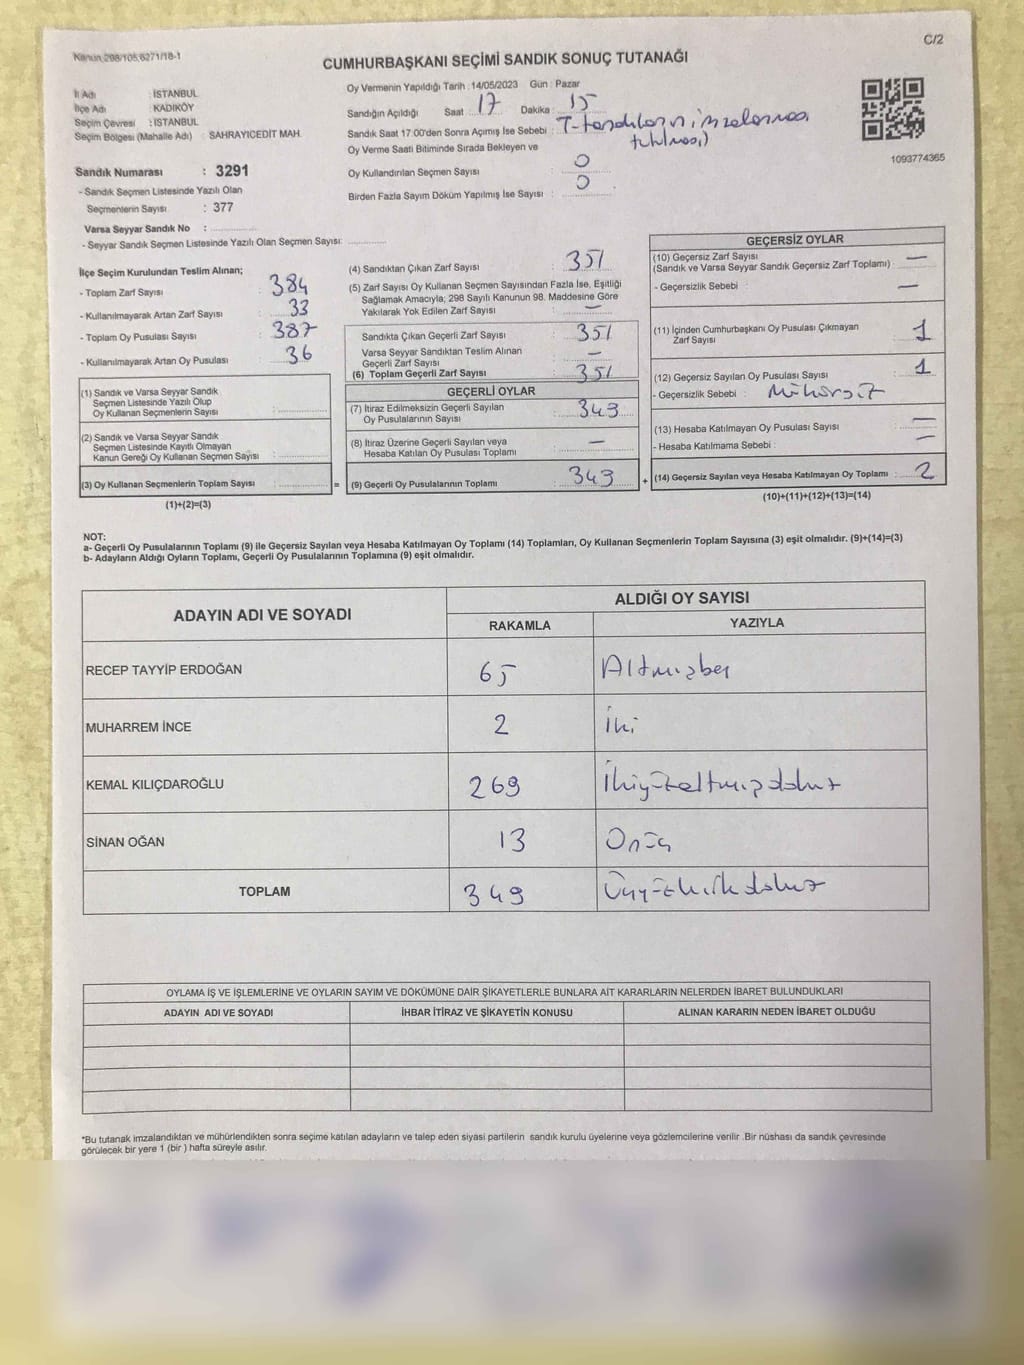 C/2
Kanun 298/105,6271/18-1
CUMHURBAŞKANI SEÇİMİ SANDIK SONUÇ TUTANAĞI
İl Adı : İSTANBUL
İlçe Adı : KADIKÖY
Seçim Çevresi : İSTANBUL
Seçim Bölgesi (Mahalle Adı) : SAHRAYICEDİT MAH.
Sandık Numarası : 3291
- Sandık Seçmen Listesinde Yazılı Olan
Seçmenlerin Sayısı : 377
Varsa Seyyar Sandık No :
- Seyyar Sandık Seçmen Listesinde Yazılı Olan Seçmen Sayısı:
Oy Vermenin Yapıldığı Tarih : 14/05/2023 Gün : Pazar
Sandığın Açıldığı Saat : 17 Dakika : 15
Sandık Saat 17.00'den Sonra Açımış İse Sebebi :
Oy Verme Saati Bitiminde Sırada Bekleyen ve
Oy Kullandırılan Seçmen Sayısı : 0
Birden Fazla Sayım Döküm Yapılmış İse Sayısı : 0
1093774365
İlçe Seçim Kurulundan Teslim Alınan;
- Toplam Zarf Sayısı : 384
- Kullanılmayarak Artan Zarf Sayısı : 33
- Toplam Oy Pusulası Sayısı : 387
- Kullanılmayarak Artan Oy Pusulası : 36
(1) Sandık ve Varsa Seyyar Sandık
Seçmen Listesinde Yazılı Olup
Oy Kullanan Seçmenlerin Sayısı :
(2) Sandık ve Varsa Seyyar Sandık
Seçmen Listesinde Kayıtlı Olmayan
Kanun Gereği Oy Kullanan Seçmen Sayısı :
(3) Oy Kullanan Seçmenlerin Toplam Sayısı : =
(1)+(2)=(3)
(4) Sandıktan Çıkan Zarf Sayısı : 351
(5) Zarf Sayısı Oy Kullanan Seçmen Sayısından Fazla İse, Eşitliği
Sağlamak Amacıyla; 298 Sayılı Kanunun 98. Maddesine Göre
Yakılarak Yok Edilen Zarf Sayısı : —
Sandıkta Çıkan Geçerli Zarf Sayısı : 351
Varsa Seyyar Sandıktan Teslim Alınan
Geçerli Zarf Sayısı : —
(6) Toplam Geçerli Zarf Sayısı : 351
GEÇERLİ OYLAR
(7) İtiraz Edilmeksizin Geçerli Sayılan
Oy Pusulalarının Sayısı : 349
(8) İtiraz Üzerine Geçerli Sayılan veya
Hesaba Katılan Oy Pusulası Toplamı : —
(9) Geçerli Oy Pusulalarının Toplamı : 349 +
GEÇERSİZ OYLAR
(10) Geçersiz Zarf Sayısı
(Sandık ve Varsa Seyyar Sandık Geçersiz Zarf Toplamı) : —
- Geçersizlik Sebebi : —
(11) İçinden Cumhurbaşkanı Oy Pusulası Çıkmayan
Zarf Sayısı : 1
(12) Geçersiz Sayılan Oy Pusulası Sayısı : 1
- Geçersizlik Sebebi : Mühürsüz
(13) Hesaba Katılmayan Oy Pusulası Sayısı : —
- Hesaba Katılmama Sebebi : —
(14) Geçersiz Sayılan veya Hesaba Katılmayan Oy Toplamı : 2
(10)+(11)+(12)+(13)=(14)
NOT:
a- Geçerli Oy Pusulalarının Toplamı (9) ile Geçersiz Sayılan veya Hesaba Katılmayan Oy Toplamı (14) Toplamları, Oy Kullanan Seçmenlerin Toplam Sayısına (3) eşit olmalıdır. (9)+(14)=(3)
b- Adayların Aldığı Oyların Toplamı, Geçerli Oy Pusulalarının Toplamına (9) eşit olmalıdır.
ADAYIN ADI VE SOYADI ALDIĞI OY SAYISI
RAKAMLA YAZIYLA
RECEP TAYYİP ERDOĞAN 65 Altmışbeş
MUHARREM İNCE 2 İki
KEMAL KILIÇDAROĞLU 269 İkiyüzaltmışdokuz
SİNAN OĞAN 13 Onüç
TOPLAM 349 Üçyüzkırkdokuz
OYLAMA İŞ VE İŞLEMLERİNE VE OYLARIN SAYIM VE DÖKÜMÜNE DAİR ŞİKAYETLERLE BUNLARA AİT KARARLARIN NELERDEN İBARET BULUNDUKLARI
ADAYIN ADI VE SOYADI İHBAR İTİRAZ VE ŞİKAYETİN KONUSU ALINAN KARARIN NEDEN İBARET OLDUĞU
*Bu tutanak imzalandıktan ve mühürlendikten sonra seçime katılan adayların ve talep eden siyasi partilerin sandık kurulu üyelerine veya gözlemcilerine verilir .Bir nüshası da sandık çevresinde
görülecek bir yere 1 (bir ) hafta süreyle asılır.